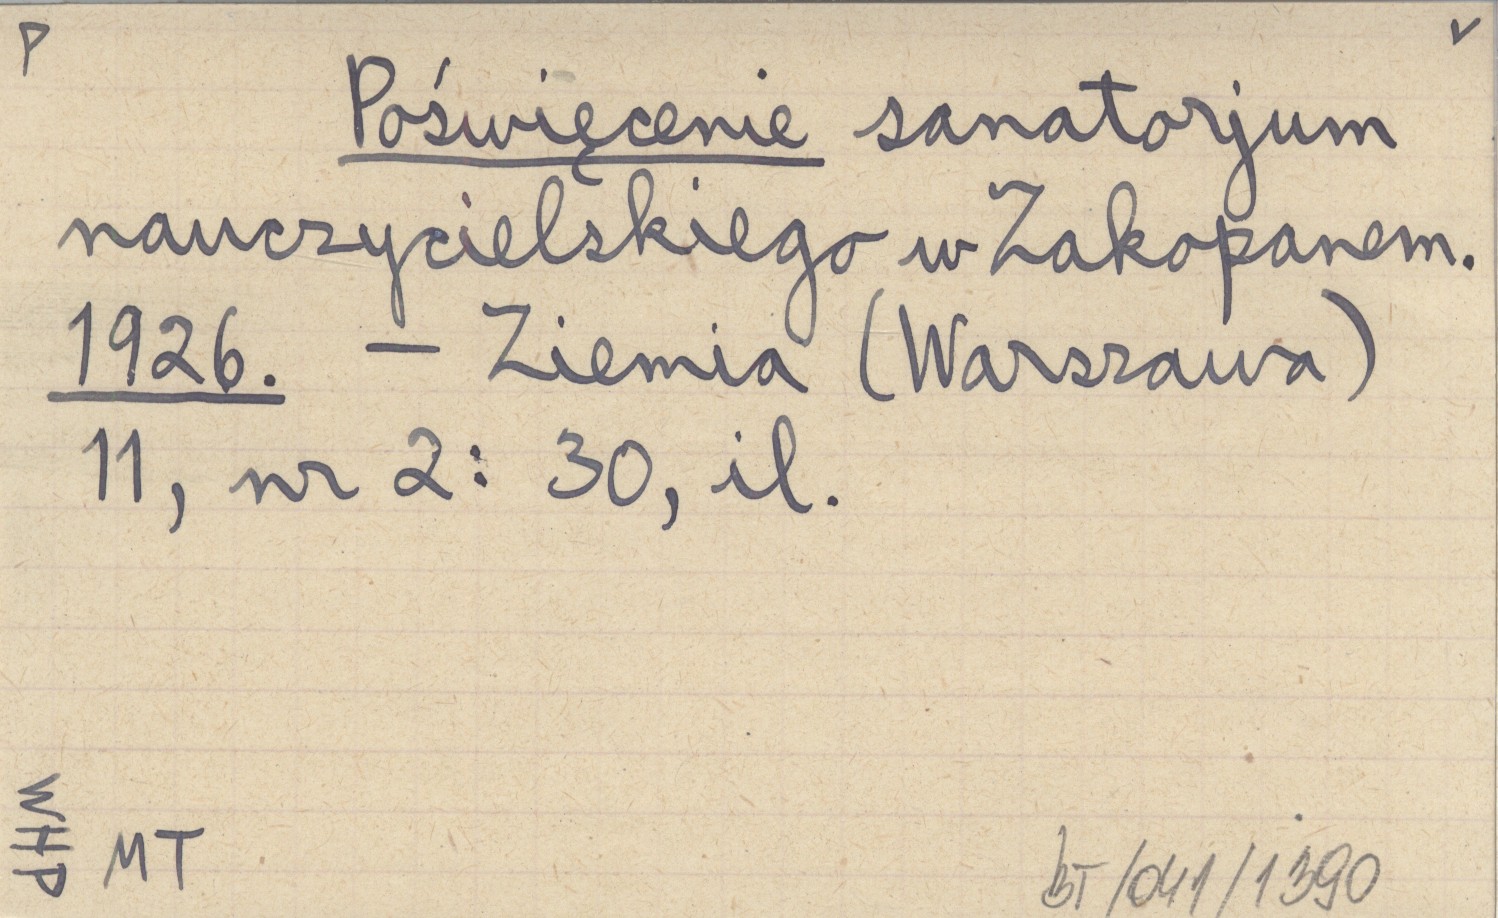 P v
Poświęcenie sanatorjum
nauczycielskiego w Zakopanem.
1926. — Ziemia (Warszawa)
11, nr 2: 30, il.
WHP
MT
BT/041/1390